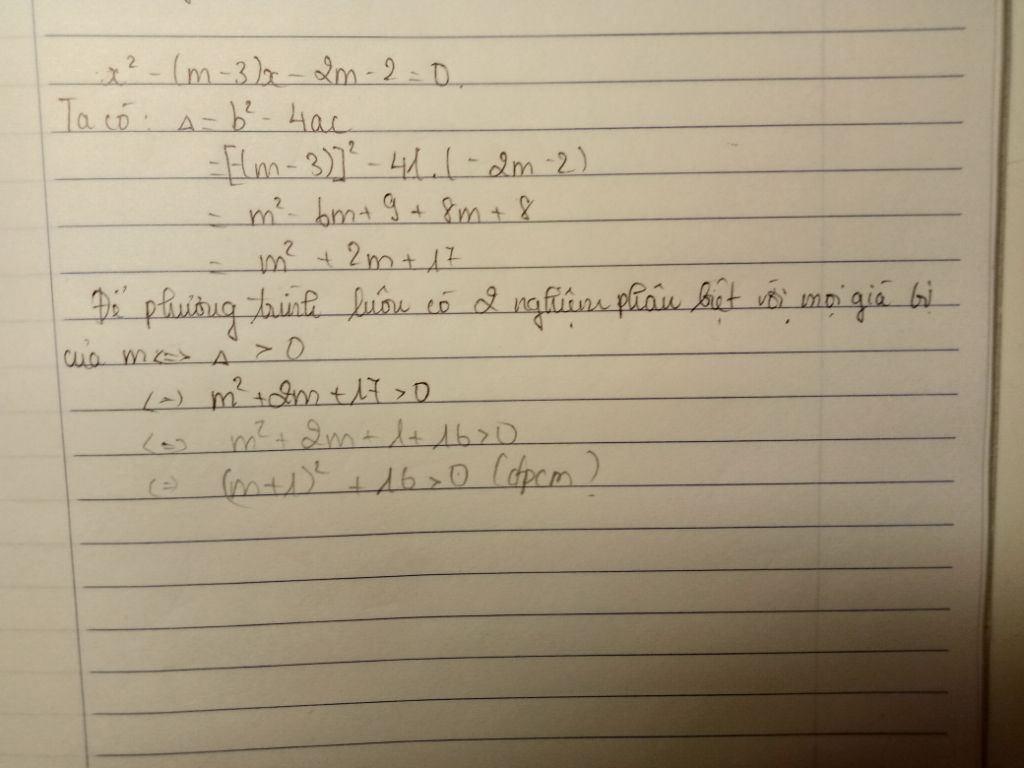 x² - (m-3)x - 2m - 2 = 0.
Ta có: Δ = b² - 4ac
= [-(m-3)]² - 4.1.(-2m-2)
= m² - 6m + 9 + 8m + 8
= m² + 2m + 17
Để phương trình luôn có 2 nghiệm phân biệt với mọi giá trị
của m <=> Δ > 0
<=> m² + 2m + 17 > 0
<=> m² + 2m + 1 + 16 > 0
<=> (m+1)² + 16 > 0 (đpcm)